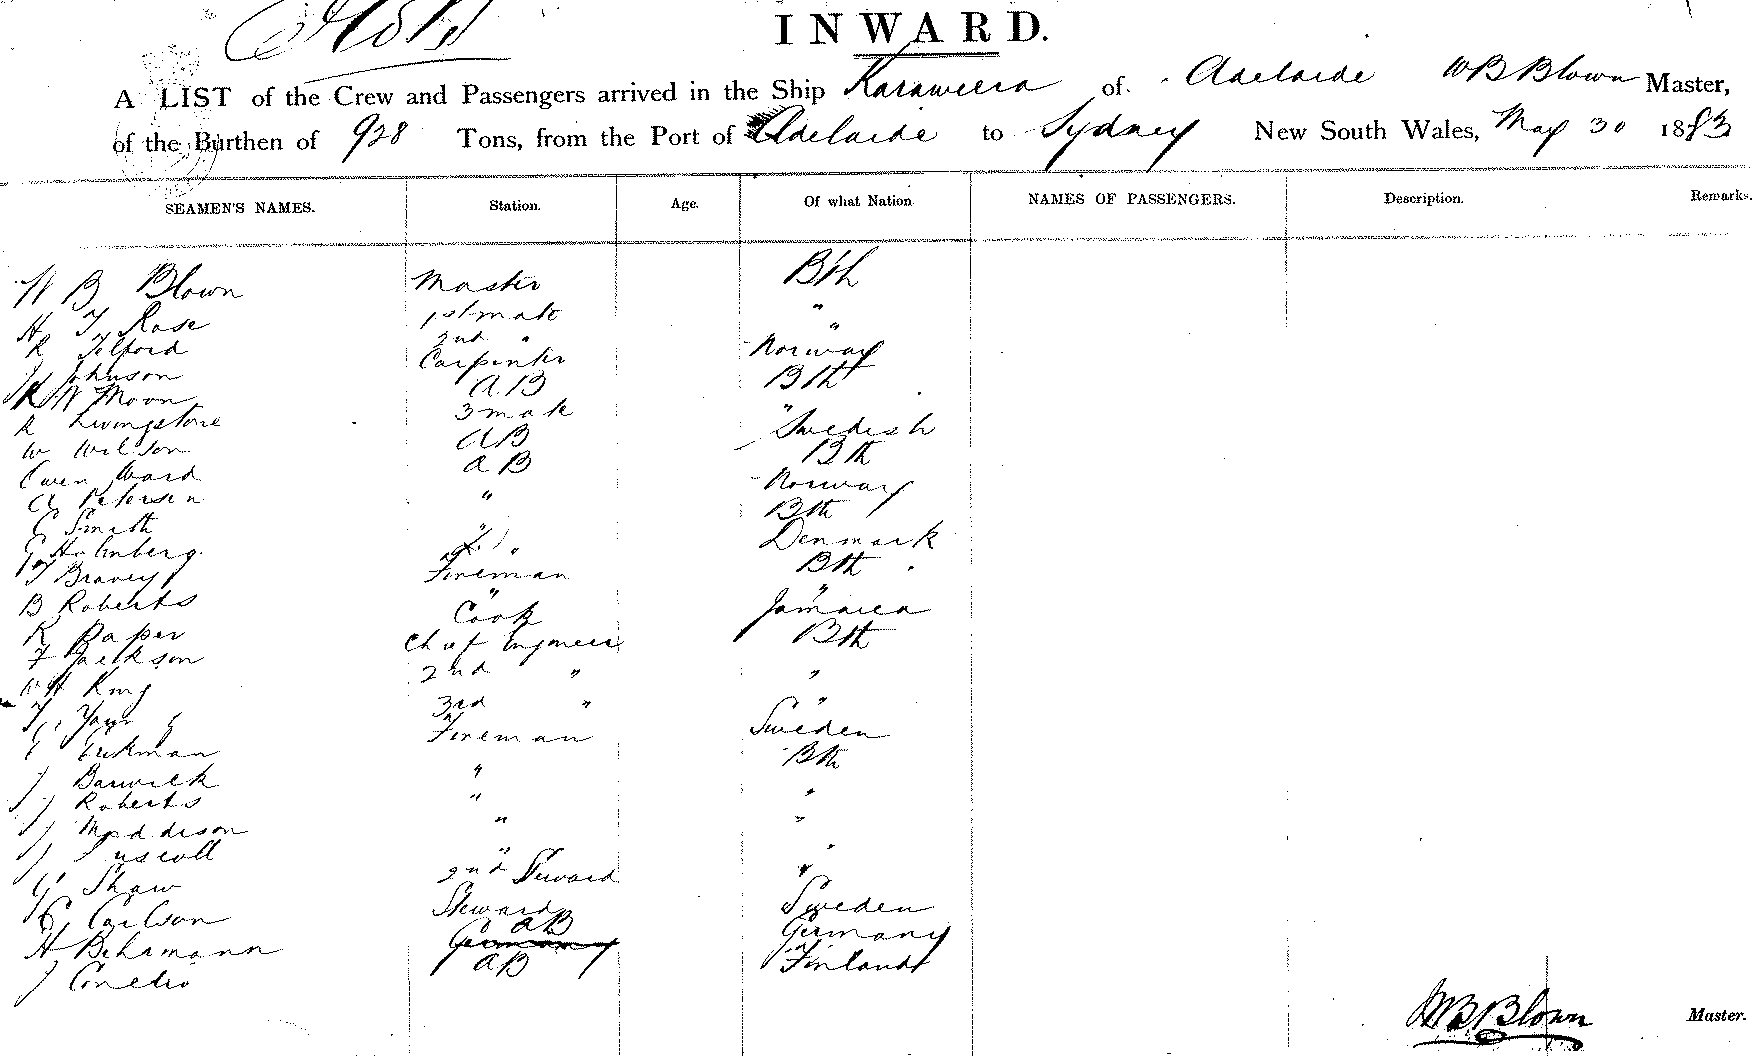 INWARD.
A LIST of the Crew and Passengers arrived in the Ship Karaweera of. Adelaide W B Blown Master,
of the Burthen of 928 Tons, from the Port of Adelaide to Sydney New South Wales, May 30 1883
SEAMEN'S NAMES. Station. Age. Of what Nation NAMES OF PASSENGERS. Description. Remarks.
W B Blown Master Bth
H T Rose 1st mate "
R Telford 2nd " "
J Johnson Carpenter Norway
W Moon A.B Bth
R Livingstone 3 mate "
W Wilson AB Swedish
Owen Ward AB Bth
Petersen " Norway
C Smith Bth
G Holmberg " Denmark
Bravey Fireman Bth
B Roberts " "
R Raper Cook Jamaica
F Jackson Chief Engineer Bth
W H King 2nd " "
T. 3rd " "
Erikman Fireman Sweden
J Barwick " Bth
J Roberts " "
J Maddison " "
J " "
G Shaw 2nd Steward "
C Carlson Steward Sweden
H Behrmann AB Germany Germany
J AB Finland
W B Blown Master.